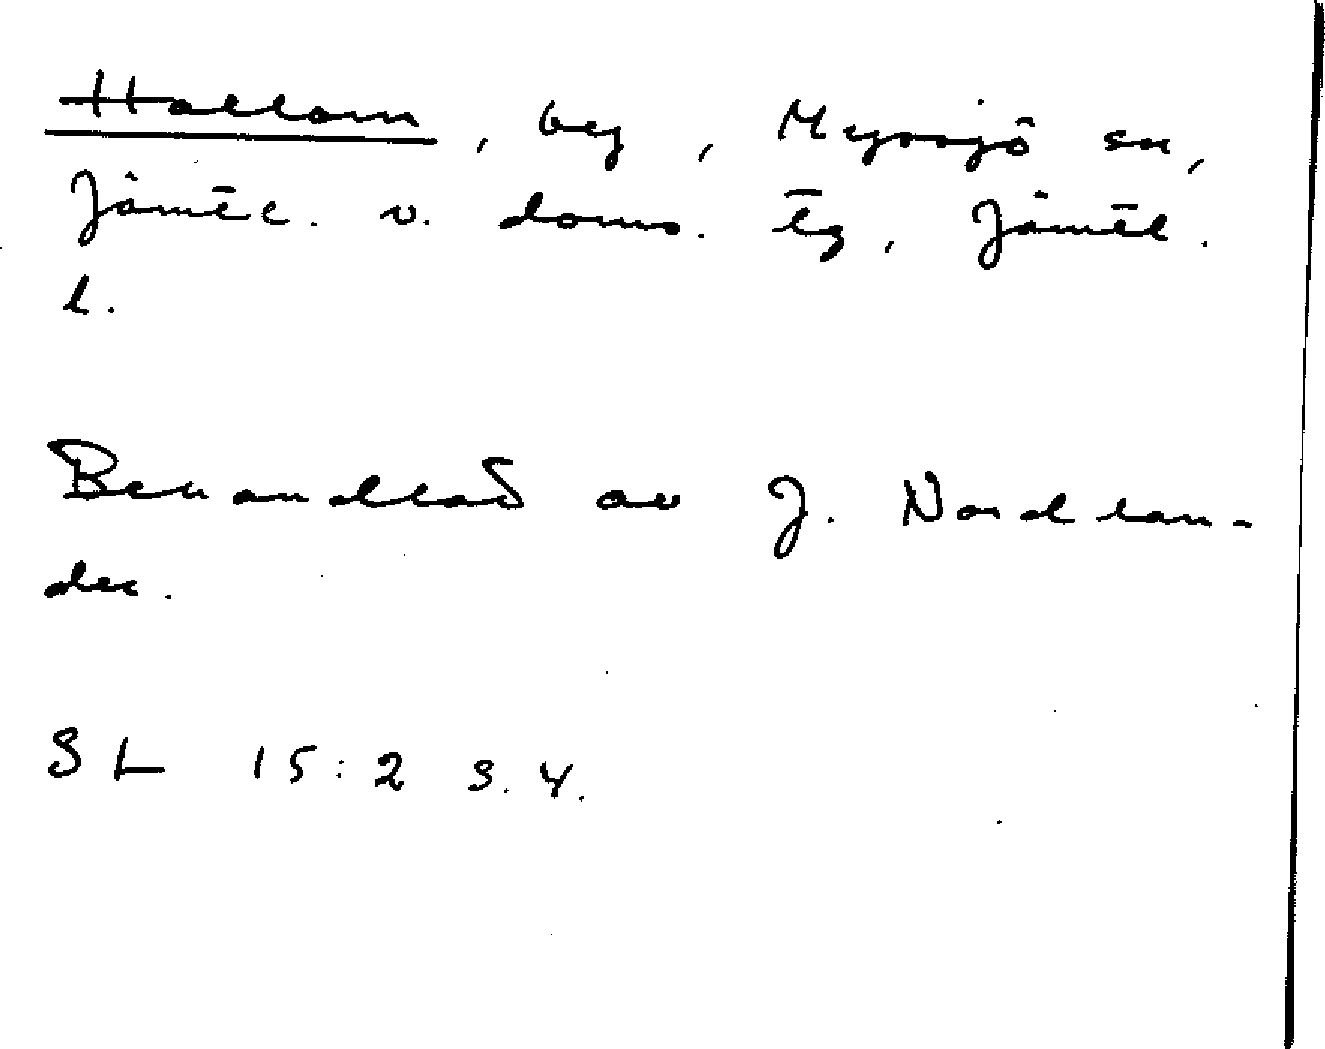 Hallom, by, Myssjö sn,
Jämtl. v. doms. tg, Jämtl.
l.
Behandlad av J. Nordlan-
der.
SL 15:2 s. 4.